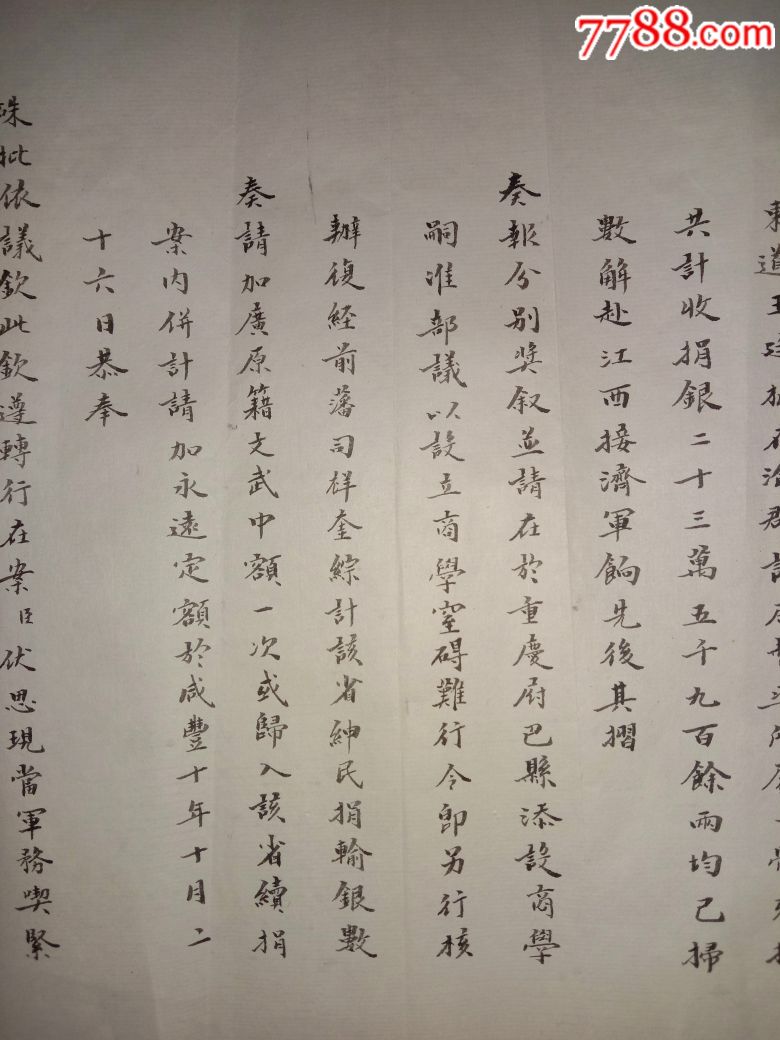 7788.com
共計收捐銀二十三萬五千九百餘兩均已掃
數解赴江西接濟軍餉先後具摺
奏報分別獎叙並請在於重慶府巴縣添設商學
嗣准部議以設立商學窒碍難行令即另行核
辦復經前藩司祥奎綜計該省紳民捐輸銀數
奏請加廣原籍文武中額一次或歸入該省續捐
案內併計請加永遠定額於咸豐十年十月二
十六日恭奉
硃批依議欽此欽遵轉行在案臣伏思現當軍務喫緊